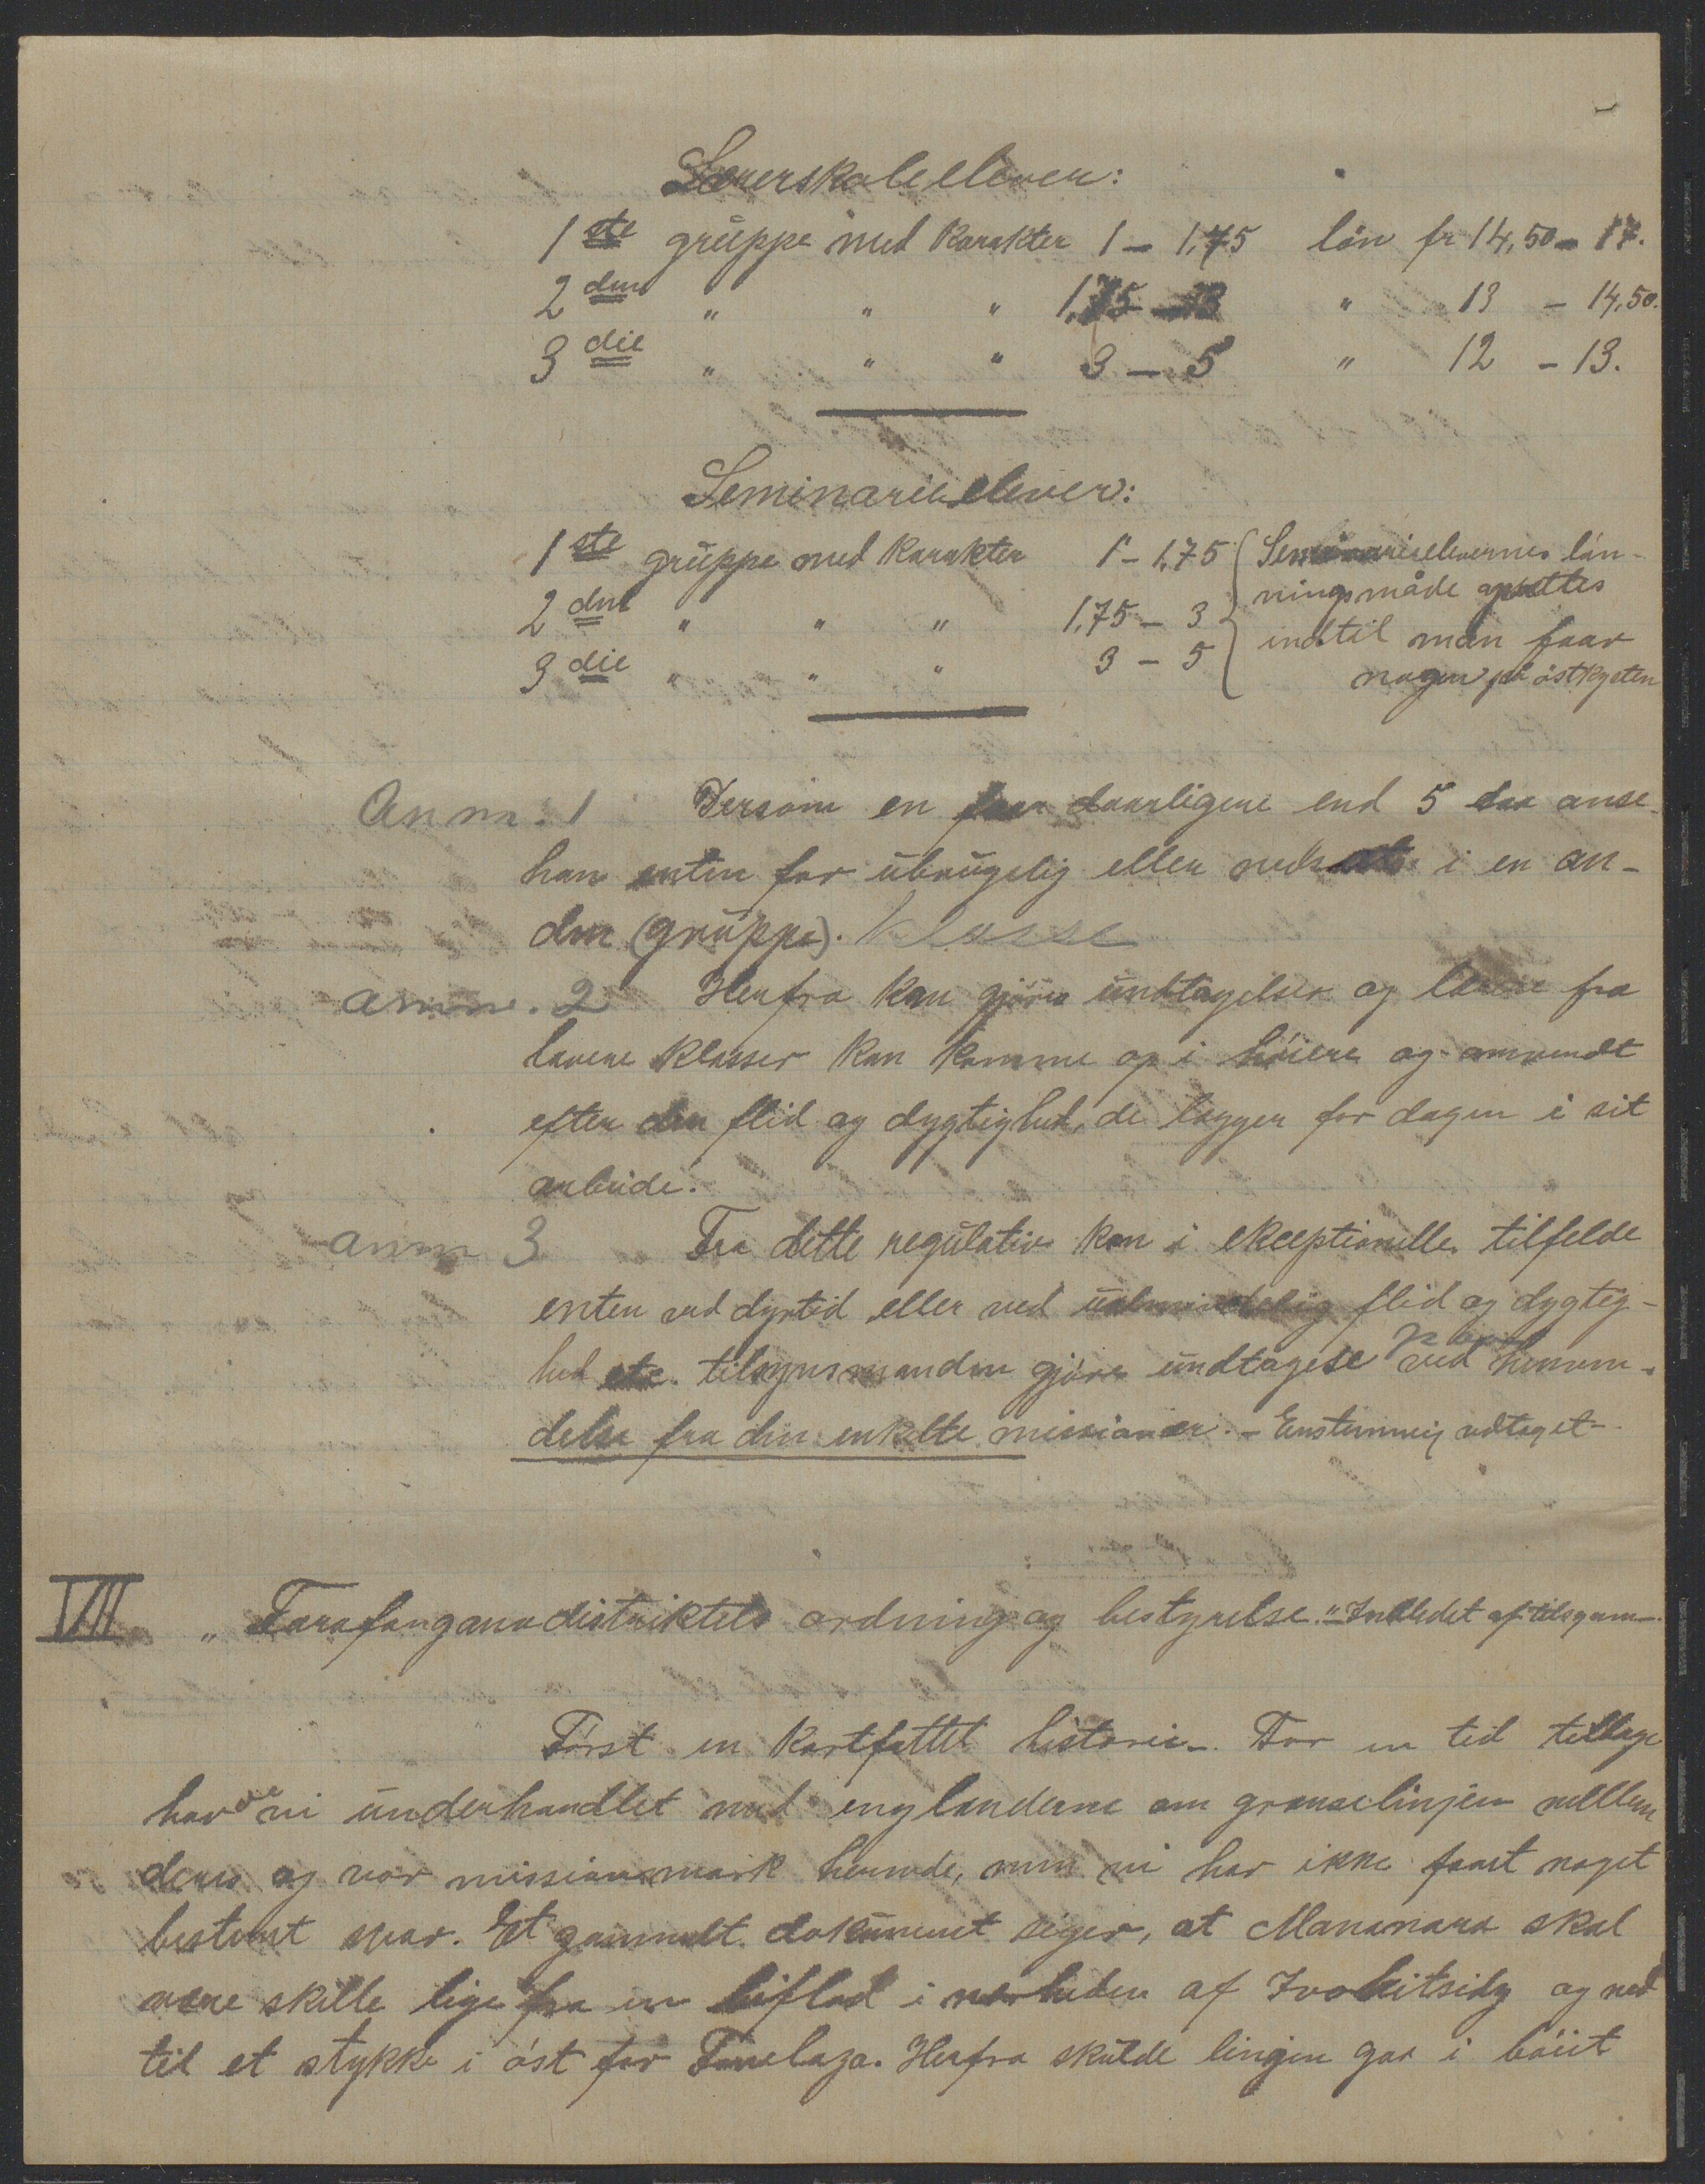 Lærerskoleelever:
1ste gruppe med karakter 1 – 1,75 lön fr 14,50 – 17.
2den " " " 1,75 – 3 " 13 – 14,50.
3die " " " 3 – 5 " 12 – 13.
Seminarieelever:
1ste gruppe med karakter 1 – 1,75 Seminarieelevernes lön-
ningsmåde opsættes
2den " " " 1,75 – 3
indtil man faar
3die " " " 3 – 5
nogen på östkysten
Anm: 1 Dersom en faar daarligere end 5 ansees
han enten for ubrugelig eller nedsættes i en an-
den (gruppe). klasse
anm. 2 Herfra kan gjöres undtagelser og lærere fra
lavere klasser kan komme op i höiere og omvendt
efter den flid og dygtighed, de lægger for dagen i sit
arbeide.
anm 3 Fra dette regulativ kan i ekceptionelle tilfelde
enten ved dyrtid eller ved ualmindelig flid og dygtig-
hed etc. tilsynsmanden gjöre undtagese ved henven-
delse fra den enkelte missionær. – Enstemmig vedtaget –
VII „Farafanganadistriktets ordning og bestyrelse." – Indledet af tilsynsm.
Först en kortfattet historie. For en tid tilbage
havde vi underhandlet med englænderne om grænselinjen mellem
deres og vor missionsmark hernede, men vi har ikke faaet noget
bestemt svar. Et gammelt dokument siger, at Mananara skal
være skille lige fra en biflod i nærheden af Ivohitsidy og ned
til et stykke i öst for Fanelaza. Herfra skulde linjen gaa i böiet